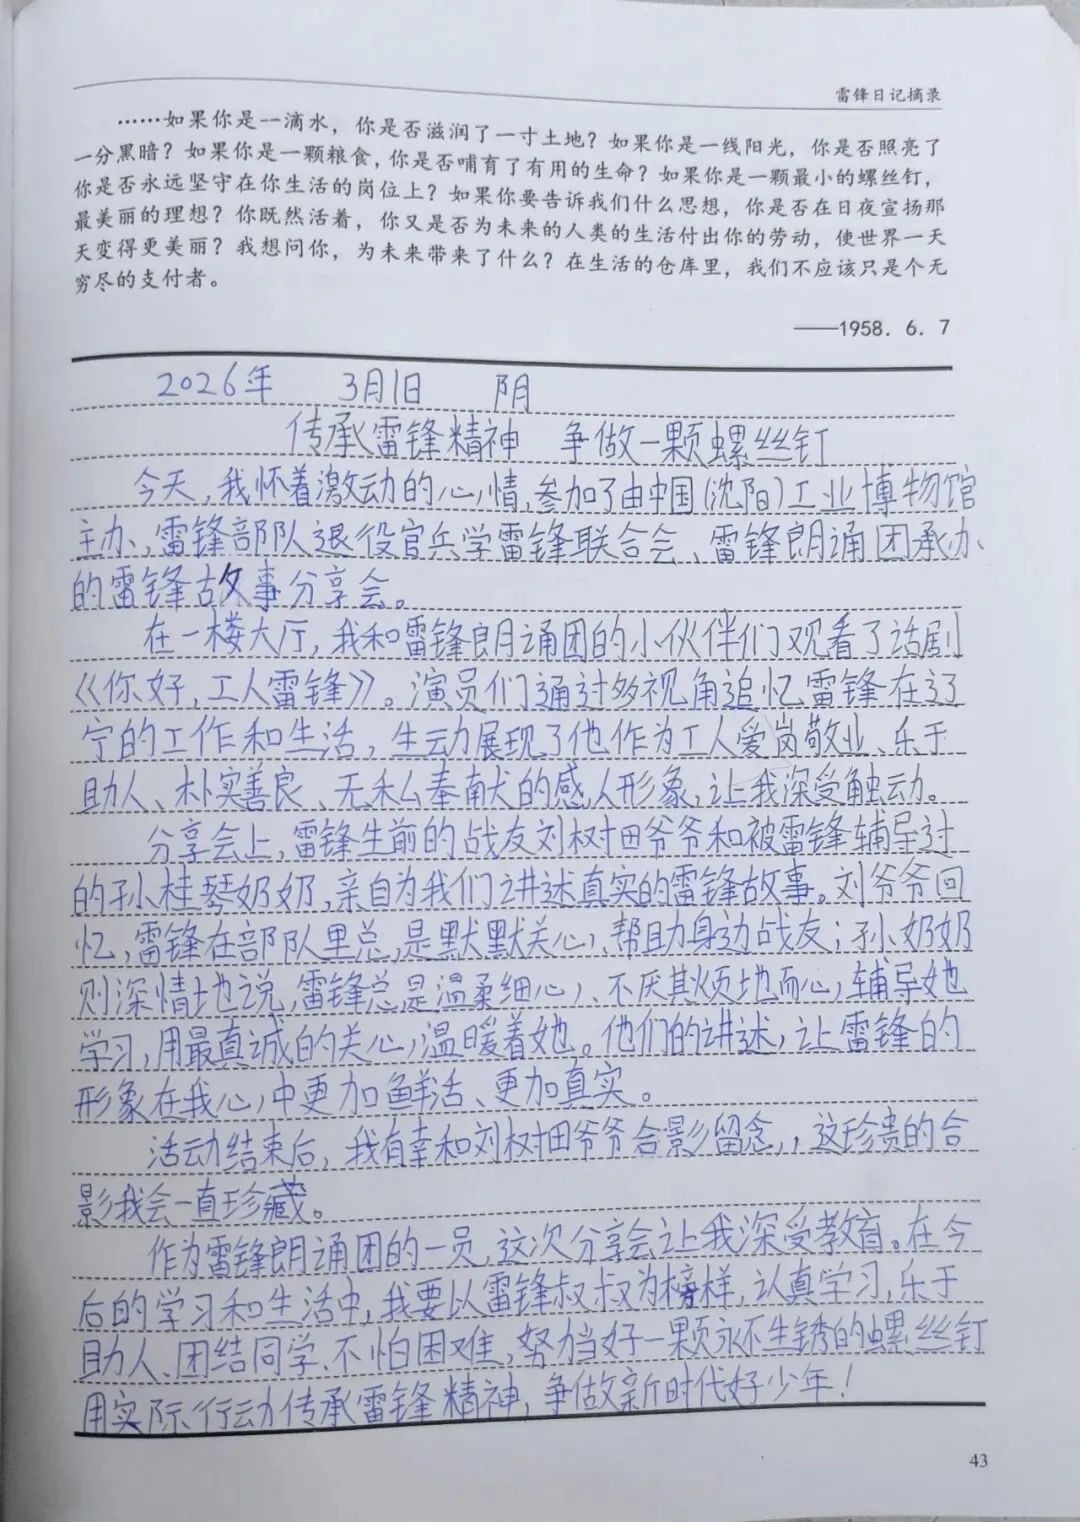 雷锋日记摘录
……如果你是一滴水，你是否滋润了一寸土地？如果你是一线阳光，你是否照亮了
一分黑暗？如果你是一颗粮食，你是否哺育了有用的生命？如果你是一颗最小的螺丝钉，
你是否永远坚守在你生活的岗位上？如果你要告诉我们什么思想，你是否在日夜宣扬那
最美丽的理想？你既然活着，你又是否为未来的人类的生活付出你的劳动，使世界一天
天变得更美丽？我想问你，为未来带来了什么？在生活的仓库里，我们不应该只是个无
穷尽的支付者。
——1958．6．7
2026年 3月1日 阴
传承雷锋精神 争做一颗螺丝钉
今天，我怀着激动的心情，参加了由中国(沈阳)工业博物馆
主办、雷锋部队退役官兵学雷锋联合会、雷锋朗诵团承办
的雷锋故事分享会。
在一楼大厅，我和雷锋朗诵团的小伙伴们观看了话剧
《你好，工人雷锋》。演员们通过多视角追忆雷锋在辽
宁的工作和生活，生动展现了他作为工人爱岗敬业、乐于
助人、朴实善良、无私奉献的感人形象，让我深受触动。
分享会上，雷锋生前的战友刘树田爷爷和被雷锋辅导过
的孙桂琴奶奶，亲自为我们讲述真实的雷锋故事。刘爷爷回
忆，雷锋在部队里总是默默关心、帮助身边战友；孙奶奶
则深情地说，雷锋总是温柔细心、不厌其烦地耐心辅导她
学习，用最真诚的关心温暖着她。他们的讲述，让雷锋的
形象在我心中更加鲜活、更加真实。
活动结束后，我有幸和刘树田爷爷合影留念，，这珍贵的合
影我会一直珍藏。
作为雷锋朗诵团的一员，这次分享会让我深受教育。在今
后的学习和生活中，我要以雷锋叔叔为榜样，认真学习，乐于
助人、团结同学、不怕困难，努力当好一颗永不生锈的螺丝钉
用实际行动传承雷锋精神，争做新时代好少年！
43